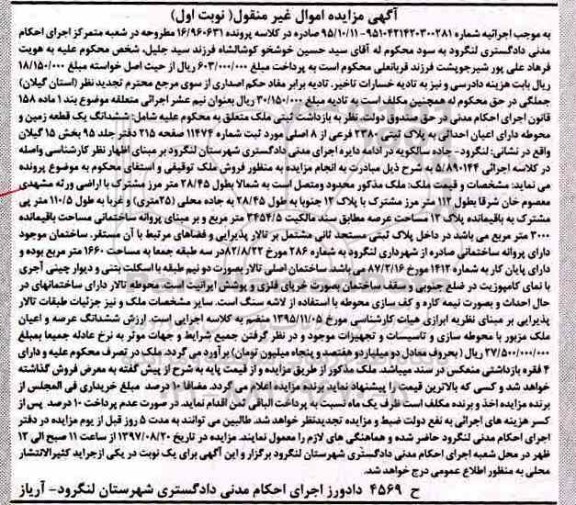 آگهی مزایده اموال غیر منقول( نوبت اول)
به موجب اجرائیه شماره ۹۵۱۰۴۲۱۴۲۰۳۰۰۲۸۱-۹۵/۱۰/۱۱ صادره در کلاسه پرونده ۱۶/۹۶۰۶۳۱ مطروحه در شعبه متمرکز اجرای احکام
مدنی دادگستری لنگرود به سود محکوم له آقای سید حسین خوشخو کوشالشاه فرزند سید جلیل، شخص محکوم علیه به هویت
فرهاد علی پور شیرجوپشت فرزند قربانعلی محکوم است به پرداخت مبلغ ۶۰۳/۰۰۰/۰۰۰ ریال از حیث اصل خواسته مبلغ ۱۸/۱۵۰/۰۰۰
ریال بابت هزینه دادرسی و نیز به تادیه خسارات تاخیر. تادیه برابر مفاد حکم اصداری از سوی مرجع محترم تجدید نظر (استان گیلان)
جملگی در حق محکوم له همچنین مکلف است به تادیه مبلغ ۳۰/۱۵۰/۰۰۰ ریال بعنوان نیم عشر اجرائی متعلقه موضوع بند ۱ ماده ۱۵۸
قانون اجرای احکام مدنی در حق صندوق دولت. نظر به بازداشت ثبتی ملک متعلق به محکوم علیه شامل: ششدانگ یک قطعه زمین و
محوطه دارای اعیان احداثی به پلاک ثبتی ۲۳۸۰ فرعی از ۸ اصلی مورد ثبت شماره ۱۱۴۷۴ صفحه ۲۱۵ دفتر جلد ۹۵ بخش ۱۵ گیلان
واقع در نشانی: لنگرود- جاده سالکویه در ادامه دایره اجرای مدنی دادگستری شهرستان لنگرود بر مبنای اظهار نظر کارشناسی واصله
در کلاسه اجرائی ۵/۸۹۰۱۴۴ به شرح ذیل مبادرت به انجام مزایده به منظور فروش ملک توقیفی و استفای محکوم به موضوع پرونده
می نماید: مشخصات و قیمت ملک: ملک مذکور محدود ومتصل است به شمالا بطول ۲۸/۴۵ متر مرز مشترک با اراضی ورثه مشهدی
معصوم خان شرقا بطول ۱۱۲ متر مرز مشترک با پلاک ۱۲ جنوبا به طول ۲۸/۴۵ به جاده محلی (۲۵متری) و غربا به طول ۱۱۰/۵ متر پی
مشترک به باقیمانده پلاک ۱۳ مساحت عرصه مطابق سند مالکیت ۳۴۵۴/۵ متر مربع و بر مبنای پروانه ساختمانی مساحت باقیمانده
۳۰۰۰ متر مربع می باشد در داخل پلاک ثبتی مستحد ثانی مشتمل بر تالار پذیرایی و فضاهای مرتبط با آن مستقر. ساختمان موجود
دارای پروانه ساختمانی صادره از شهرداری لنگرود به شماره ۲۸۶ مورخ ۸۲/۸/۲۲در سه طبقه جمعا به مساحت ۱۶۶۰ متر مربع بوده و
دارای پایان کار به شماره ۱۴۱۲ مورخ ۸۷/۲/۱۶ می باشد. ساختمان اصلی تالار بصورت دو نیم طبقه با اسکلت بتنی و دیوار چینی آجری
با نمای کامپوزیت در ضلع جنوبی و سقف ساختمان بصورت خرپای فلزی و پوشش ایرانیت است. محوطه تالار دارای ساختمانهای در
حال احداث و بصورت نیمه کاره و کف سازی محوطه با استفاده از لاشه سنگ است. سایر مشخصات ملک و نیز جزئیات طبقات تالار
پذیرایی بر مبنای نظریه ابرازی هیات کارشناسی مورخ ۱۳۹۵/۱۱/۰۵ منضم به کلاسه اجرایی است. ارزش ششدانگ عرصه و اعیان
ملک مزبور با محوطه سازی و تاسیسات و تجهیزات موجود و در نظر گرفتن جمیع شرایط و جهات موثر به نرخ عادله جمیعا بمبلغ
۲۷/۵۰۰/۰۰۰/۰۰۰ ریال (بحروف معادل دو میلیارد و هفتصد و پنجاه میلیون تومان) برآورد می گردد. ملک در تصرف محکوم علیه و دارای
۴ فقره بازداشتی منعکس در سند میباشد. ملک مذکور از طریق مزایده و از قیمت پایه به شرح از پیش گفته به معرض فروش گذاشته
خواهد شد و کسی که بالاترین قیمت را پیشنهاد نماید برنده مزایده اعلام می گردد. مضافا ۱۰ درصد مبلغ خریداری فی المجلس از
برنده مزایده اخذ و برنده مکلف است ظرف یک ماه نسبت به پرداخت الباقی ثمن اقدام نماید. در صورت عدم پرداخت ۱۰ درصد پس از
کسر هزینه های اجرائی به نفع دولت ضبط و مزایده تجدیدنظر خواهد شد. طالبین می توانند به مدت ۵ روز قبل از یوم مزایده در دفتر
اجرای احکام مدنی لنگرود حاضر شده و هماهنگی های لازم را معمول نمایند. مزایده در تاریخ ۱۳۹۷/۰۸/۲۰ از ساعت ۱۱ صبح الی ۱۲
ظهر در محل شعبه اجرای احکام مدنی دادگستری شهرستان لنگرود برگزار و این آگهی برای یک نوبت در یکی ازجراید کثیرالانتشار
محلی به منظور اطلاع عمومی درج خواهد شد.
ح ۴۵۶۹ دادورز اجرای احکام مدنی دادگستری شهرستان لنگرود- آریاز